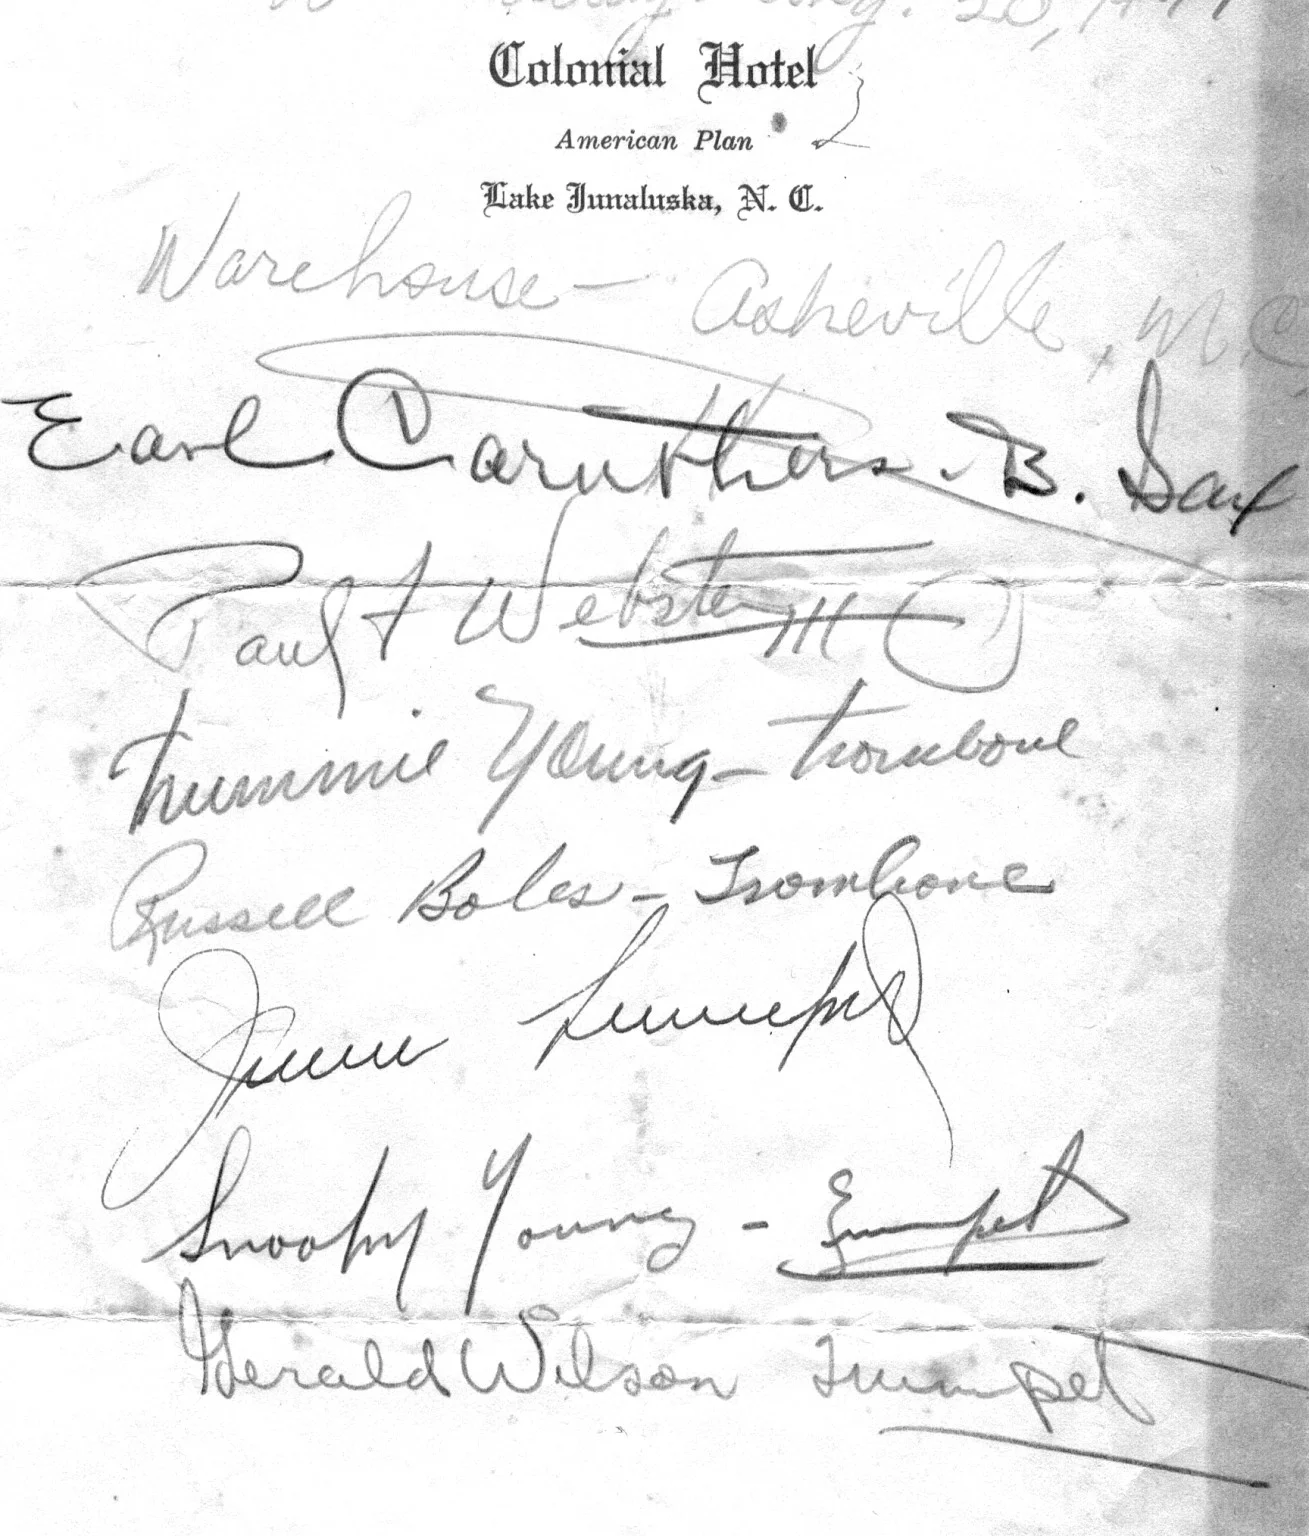 Aug. 20, 19
Colonial Hotel
American Plan
Lake Junaluska, N. C.
Warehouse - Asheville, N.C.
Earl Caruthers. B. Sax
Paul F Webster III
Trummie Young - trombone
Russell Boles - Trombone
Snooky Young - Trumpet
Gerald Wilson Trumpet